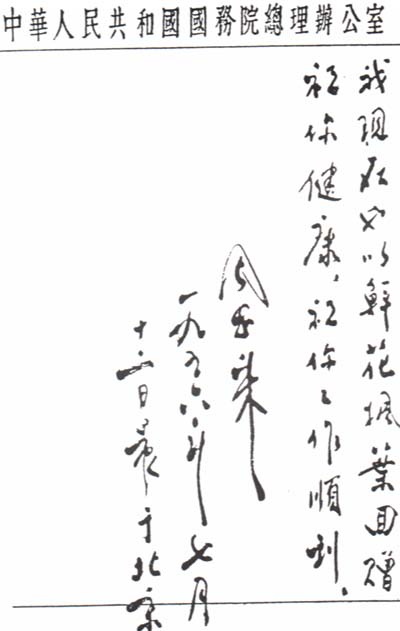 中華人民共和國國務院總理辦公室
我現在也以鮮花楓葉回贈
祝你健康，祝你工作順利。
周恩來
一九五六年七月
十二日晨于北京